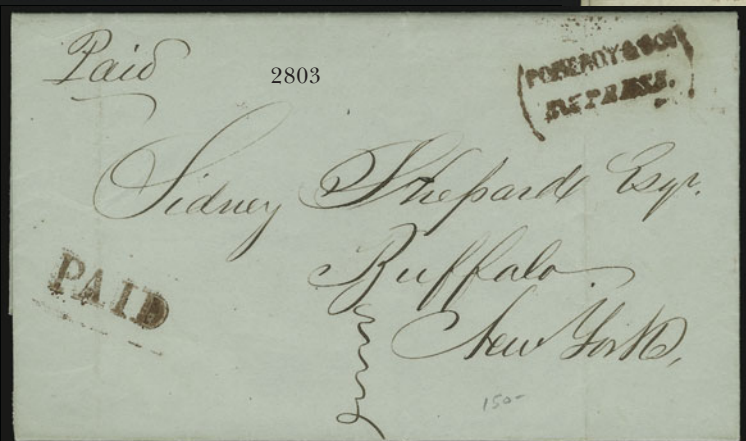 Paid
2803
POMEROY & SON
EXPRESS.
Sidney Shepard Esqr.
Buffalo
New York,
PAID
150-